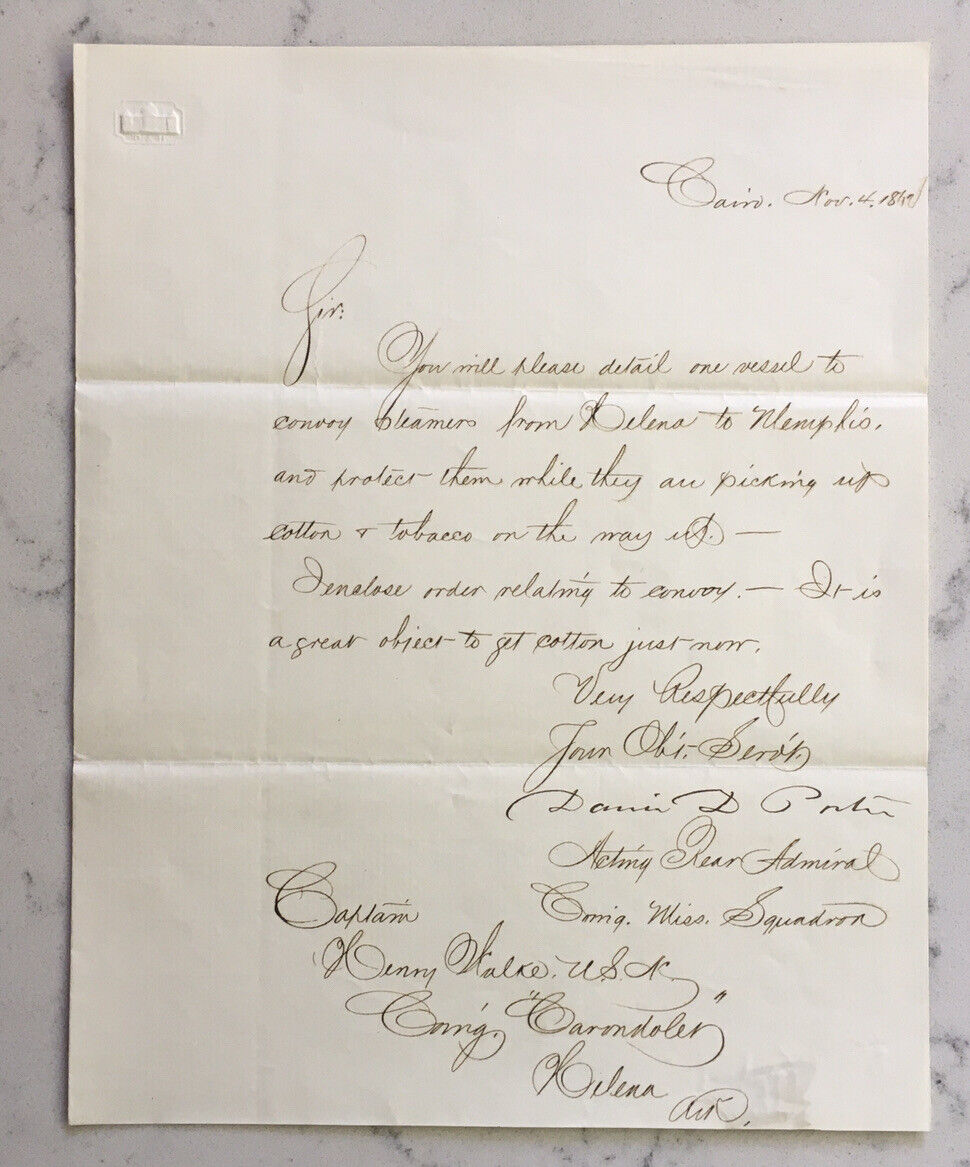 Cairo. Nov. 4. 1862
Sir:
You will please detail one vessel to
convoy steamers from Helena to Memphis,
and protect them while they are picking up
cotton & tobacco on the way up. —
I enclose order relating to convoy. — It is
a great object to get cotton just now.
Very Respectfully
Your Obt. Servt.
David D Porter
Acting Rear Admiral
Comg. Miss. Squadron
Captain
Henry Walke. U.S.N.
Comg. "Carondolet"
Helena
Ark.